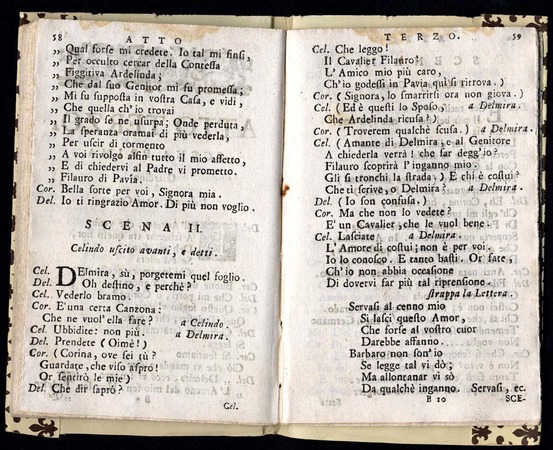 58 ATTO
„ Qual forse mi credete. Io tal mi finsi,
„ Per occulto cercar della Contessa
„ Figgitiva Ardelinda;
„ Che dal suo Genitor mi fu promessa;
„ Mi fu supposta in vostra Casa, e vidi,
„ Che quella ch'io trovai
„ Il grado se ne usurpa; Onde perduta,
„ La speranza oramai di più vederla,
„ Per uscir di tormento
„ A voi rivolgo alfin tutto il mio affetto,
„ E di chiedervi al Padre vi prometto.
„ Filauro di Pavia.
Cor. Bella sorte per voi, Signora mia.
Del. Io ti ringrazio Amor. Di più non voglio.
SCENA II.
Celindo uscito avanti, e detti.
Cel. DElmira, sù, porgetemi quel foglio.
Del. Oh destino, e perchè?
Cel. Vederlo bramo.
Cor. E' una certa Canzona:
Che ne vuol'ella fare? a Celindo.
Cel. Ubbidite: non più. a Delmira.
Del. Prendete (Oimè!)
Cor. (Corina, ove sei tù?
Guardate, che viso aspro!
Or sentirò le mie)
Del. Che dir saprò?
Cel.
TERZO. 59
Cel. Che leggo!
Il Cavalier Filauro!
L'Amico mio più caro,
Ch'io godessi in Pavia quì si ritrova.)
Cor. (Signora, lo smarrirsi ora non giova.)
Cel. (Ed è questi lo Sposo, a Delmira.
Che Ardelinda ricusa?)
Cor. (Troverem qualchè scusa.) a Delmira.
Cel. (Amante di Delmira, e al Genitore
A chiederla verrà! che far degg'io?
Filauro scoprirà l'inganno mio.
Gli si tronchi la strada.) E chi è costui?
Che ti scrive, o Delmira? a Delmira.
Del. (Io son confusa.)
Cor. Ma che non lo vedete?
E' un Cavalier, che le vuol bene.
Cel. Lasciate a Delmira.
L'Amore di costui; non è per voi.
Io lo conosco. E tanto basti. Or fate,
Ch'io non abbia occasione
Di dovervi far più tal riprensione.
strappa la Lettera.
Servasi al cenno mio
Si lasci questo Amor,
Che forse al vostro cuor
Darebbe affanno.
Barbaro non son'io
Se legge tal vi dò;
Ma allontanar vi sò
Da qualchè inganno. Servasi, ec.
B 10 SCE-